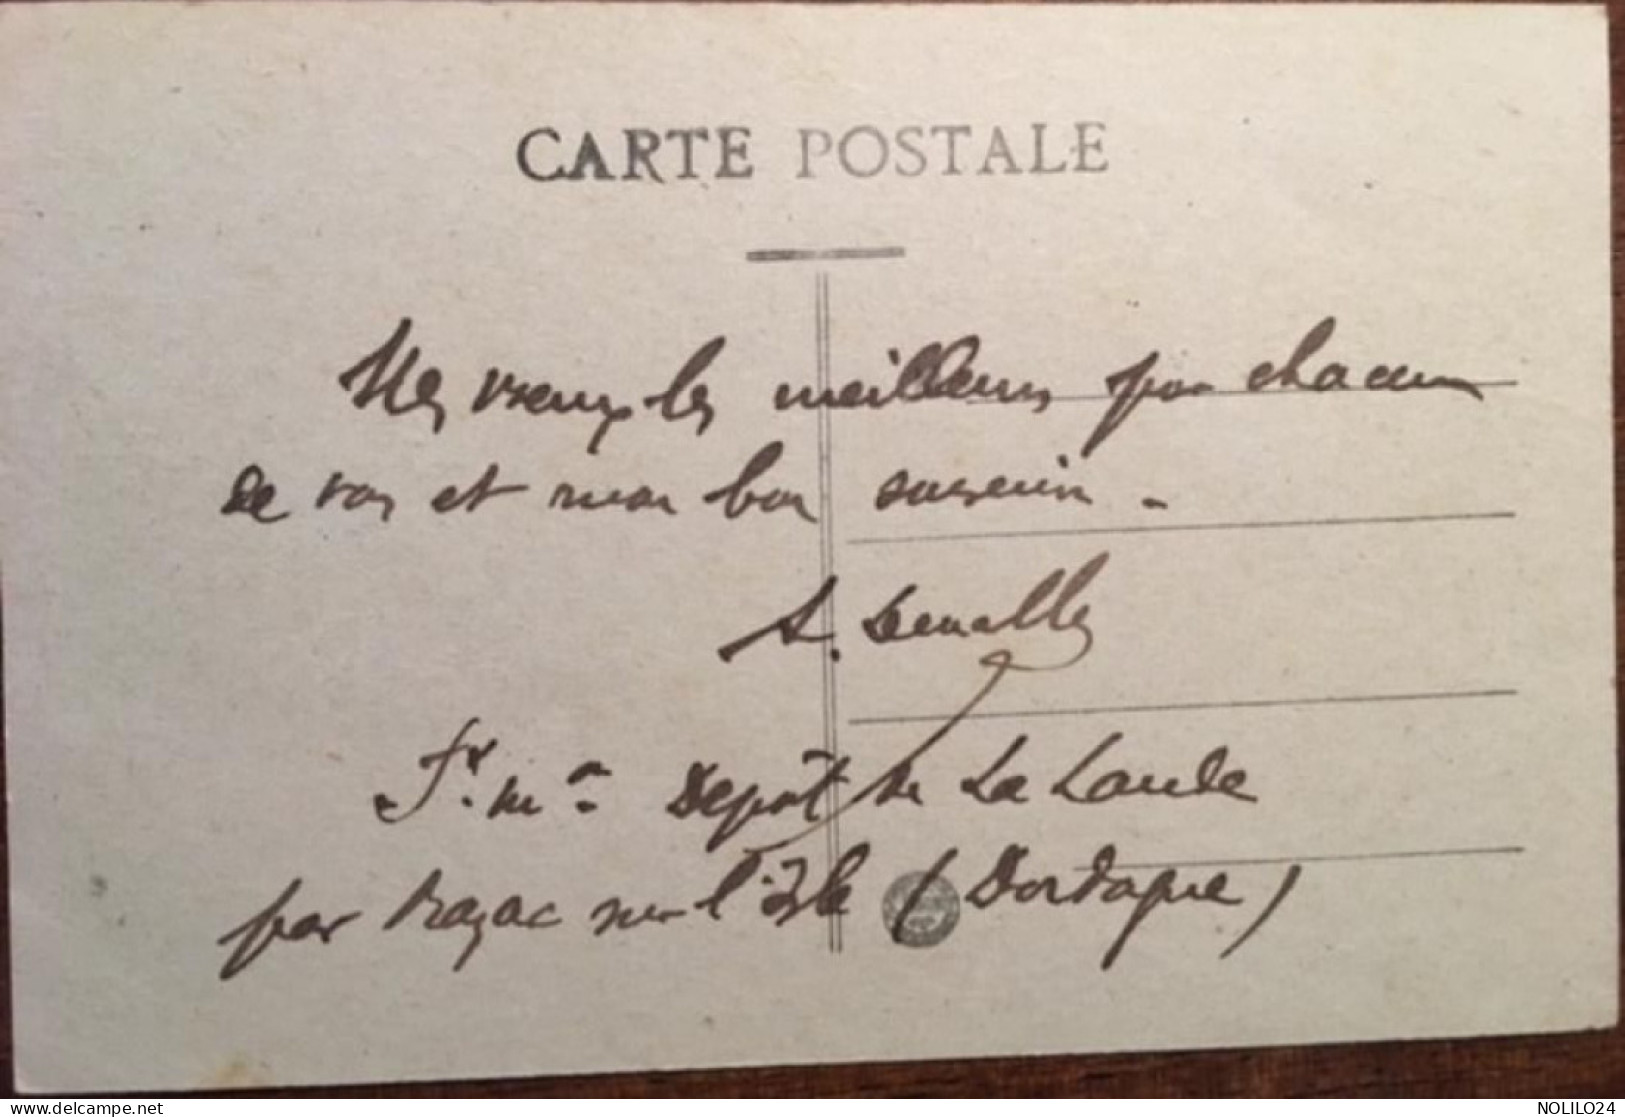 CARTE POSTALE
Mes vœux les meilleurs pour chacun
de vous et mon bon souvenir.
A.
Dépôt de La Lande
par Razac sur l'Isle (Dordogne)
NOLILO24